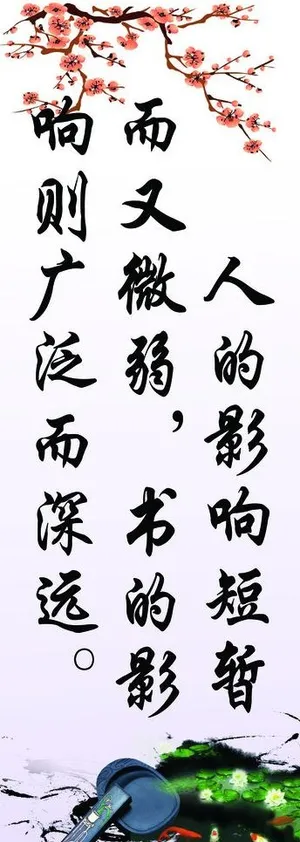 人的影响短暂
而又微弱，书的影
响则广泛而深远。